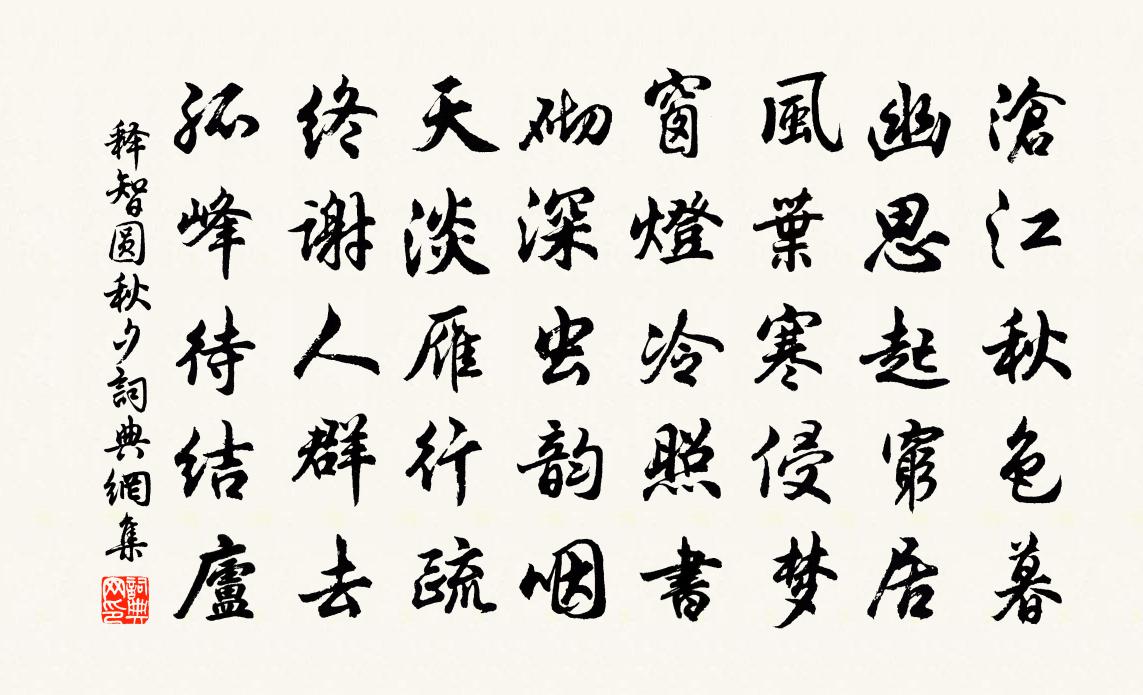 滄江秋色暮
幽思起窮居
風葉寒侵梦
窗燈冷照書
砌深虫韵咽
天淡雁行疏
终謝人群去
孤峰待结廬
释智圆秋夕詞典網集
詞典
网印